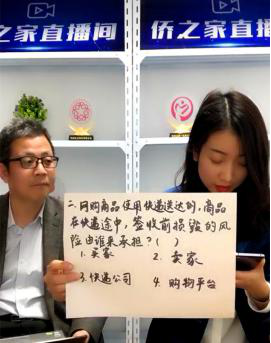 之家直播间
侨之家直播间
二、网购商品使用快递送达的,商品
在快递途中,签收前损毁的风
险由谁来承担?( )
1. 买家 2. 卖家
3. 快递公司 4. 购物平台